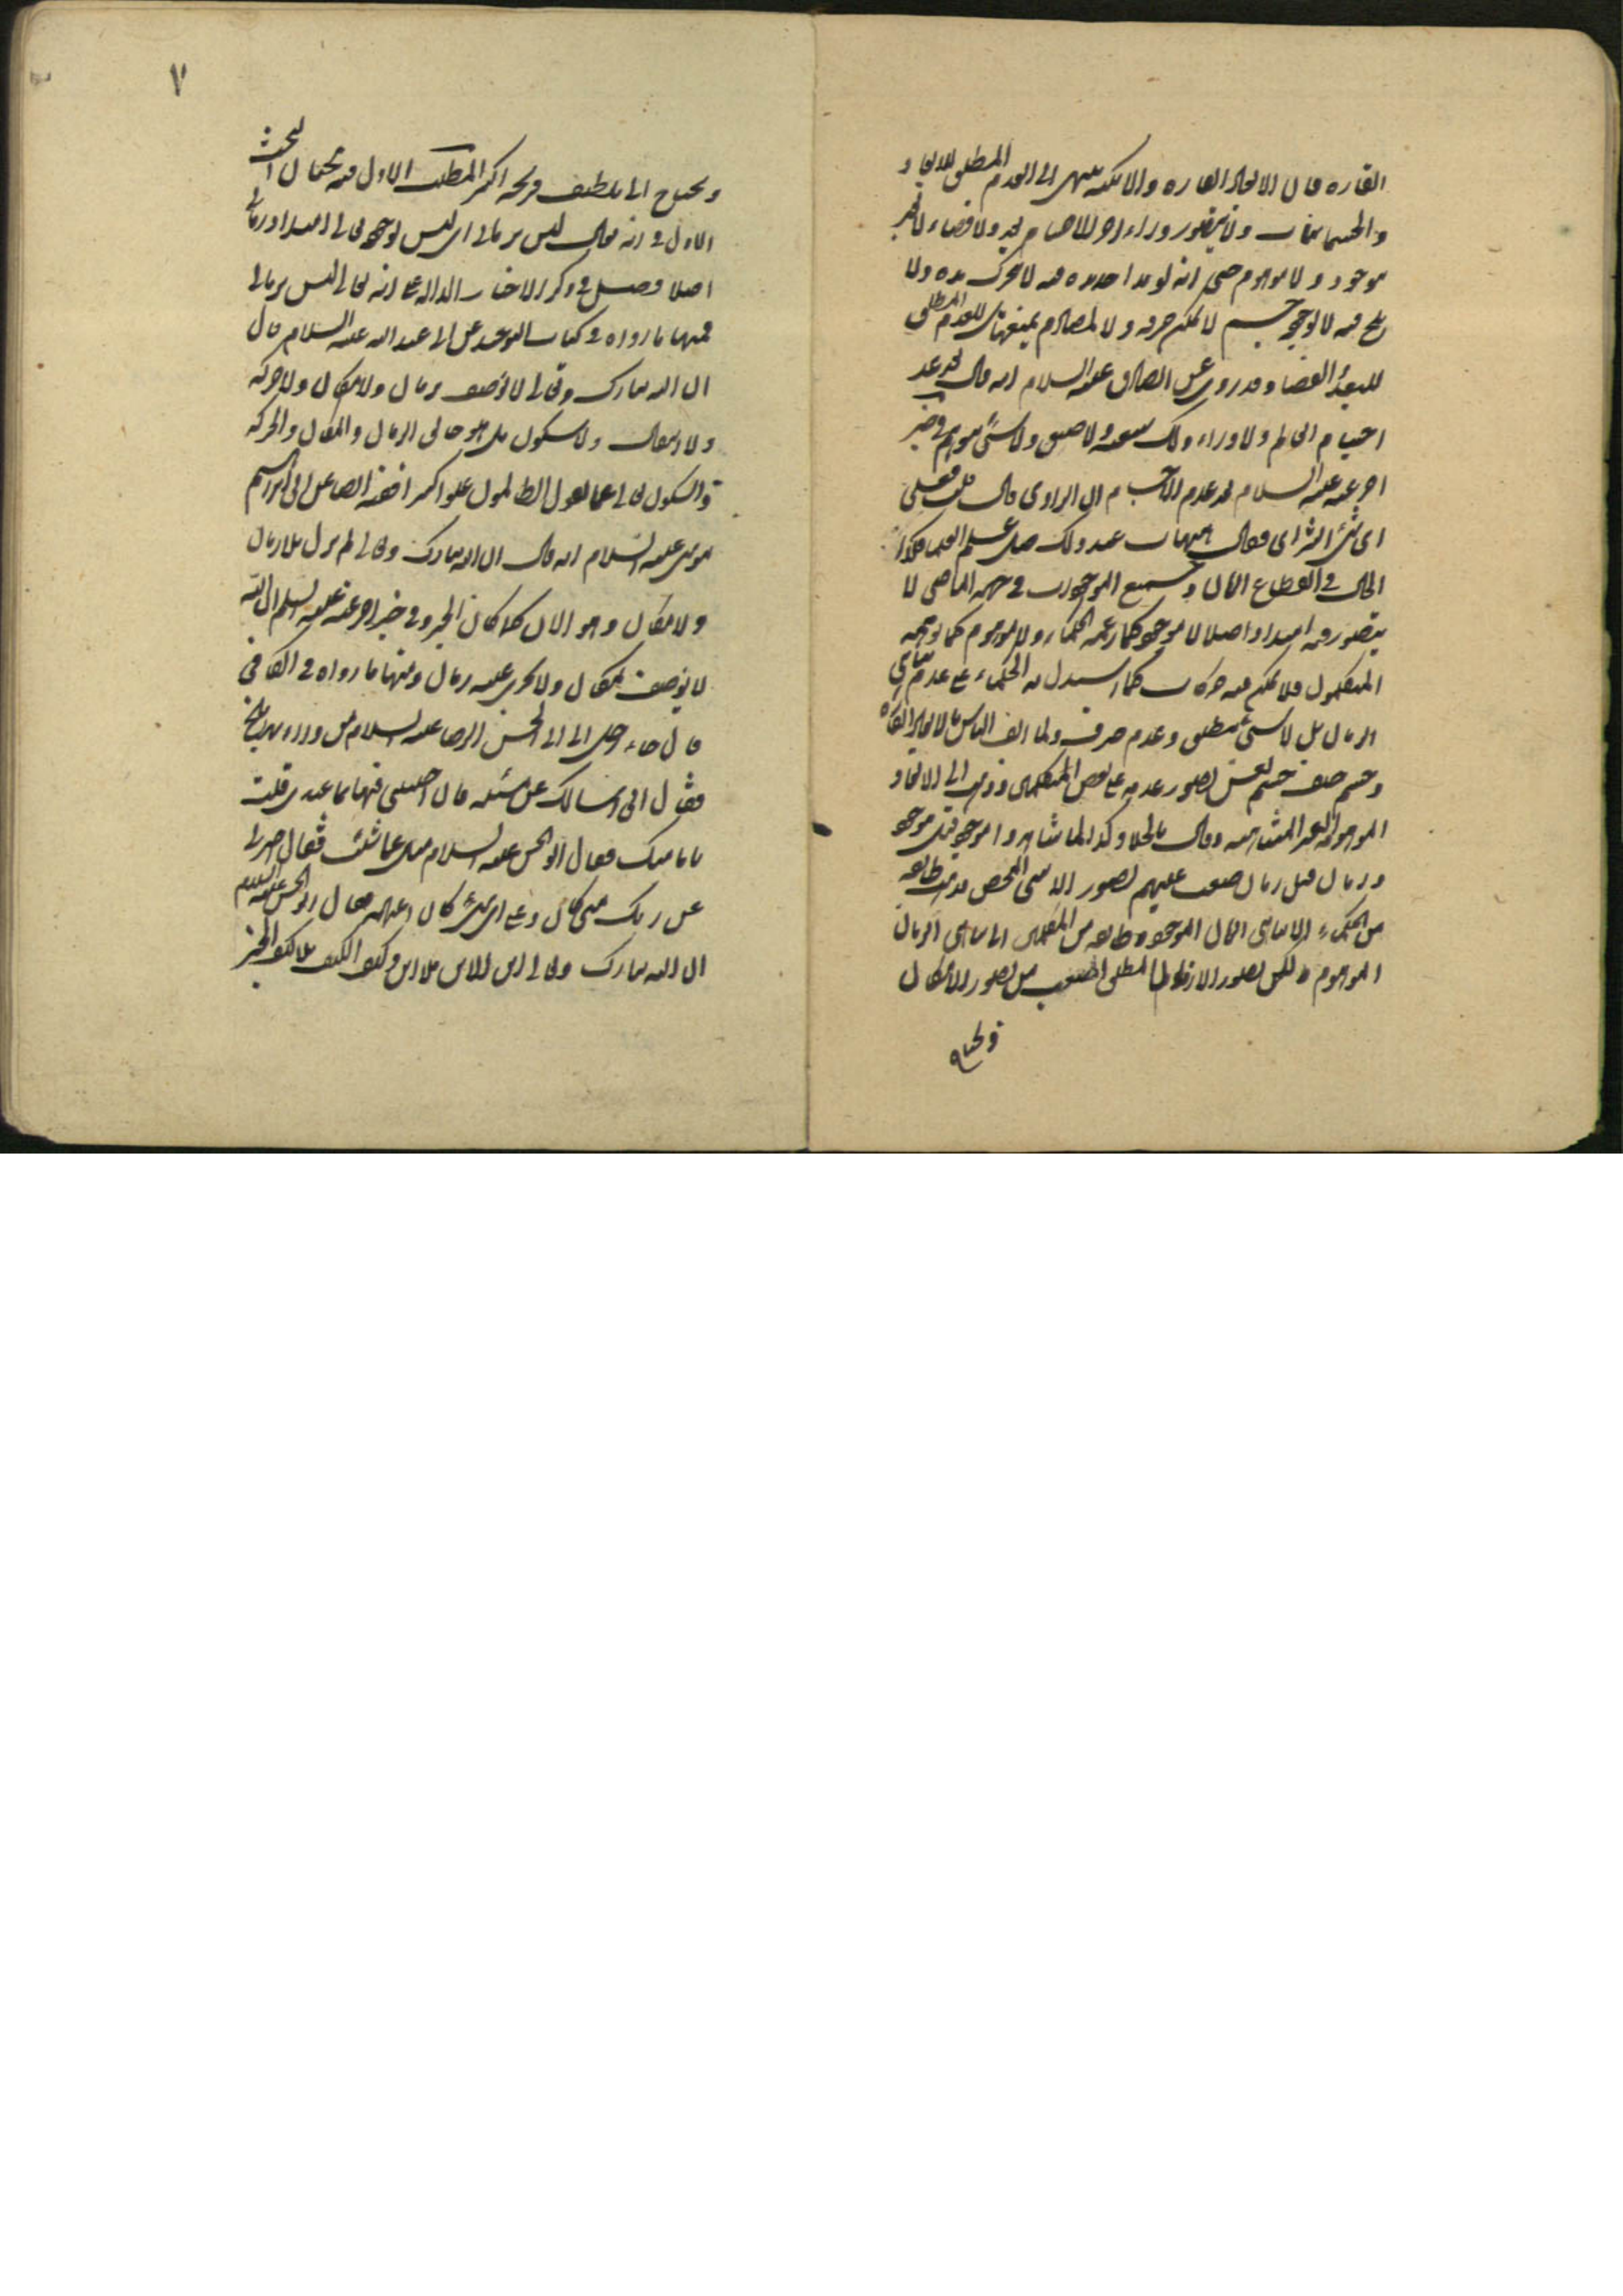 القاره فان الابعاد القاره والامكنه ينتهى الى العدم المطلق للابعاد
والجسمانيات ولا يتصور وراء اخر الاجسام بعد ولا فضاء لا بعد
موجود ولا موهوم حتى انه لو مد احد يده فيه لا تتحرك يده ولا
فيه لا لوجود جسم لا يمكن خرقه ولا لمصادم يمنعها بل للعدم المطلق
للبعد و الفضاء وقد روى عن الصادق عليه السلام انه قال بعد عد
اجسام العالم ولا وراء ذلك سعه ولا ضيق ولا شئ يتوهم وفي خبر
اخر عنه عليه السلام بعد عدم الاجسام ان الراوى قال قلت فعلى
اى شئ الثرى فقال هيهات عند ذلك ضل علم العلماء فكذا
الحال في انقطاع الزمان وجميع الموجودات في جهه الماضى لا
يتصور فيه امتداد اصلا لا موجود كما زعمه الحكماء ولا موهوم كما توهمه
المتكلمون فلا يمكن فيه حركات كما استدل به الحكماء على عدم تناهي
الزمان بل لا شئ مطلق وعدم صرف ولما الف الناس بالابعاد القاره
وجسم خلف جسم تعسر تصور عدمه على بعض المتكلمين وذهب الى الابعاد
الموهومه الغير المتناهيه وقال بالخلاء وكذا لما شاهدوا موجود قبل موجود
وزمان قبل زمان صعب عليهم تصور اللاشئ المحض فذهب طائفه
من الحكماء الى لا تناهى الزمان الموجود وطائفه من المتكلمين الى لا تناهى الزمان
الموهوم ولكن تصور اللازمان المطلق اصعب من تصور اللامكان
ويحتاج
٧
ويحتاج الى تلطيف قريحه اكثر المطلب الاول فيه بحثان البحث
الاول في انه تعالى ليس بزمانى اى ليس لوجوده تعالى امتداد زمانى
اصلا فصل في ذكر الاخبار الداله على انه تعالى ليس بزمانى
فمنها ما رواه في كتاب التوحيد عن ابى عبد الله عليه السلام قال
ان الله تبارك وتعالى لا يوصف بزمان ولا مكان ولا حركه
ولا انتقال ولا سكون بل هو خالق الزمان والمكان والحركه
والسكون تعالى عما يقول الظالمون علوا كبيرا ايضا عن ابى ابراهيم
موسى عليه السلام انه قال ان الله تبارك وتعالى لم يزل بلا زمان
ولا مكان وهو الآن كما كان الخبر وفي خبر اخر عنه عليه السلم ان الله
لا يوصف بمكان ولا يجرى عليه زمان ومنها ما رواه في الكافي
قال جاء رجل الى ابى الحسن الرضا عليه السلام من وراء نهر بلخ
فقال انى اسالك عن مسئله فان اجبتنى فيها بما عندى قلت
بامامتك فقال ابو الحسن عليه السلام سل عما شئت فقال اخبرنى
عن ربك متى كان وعلى اى شئ كان اعتماده فقال ابو الحسن عليه السلام
ان الله تبارك وتعالى اين الاين بلا اين وكيف الكيف بلا كيف الخبر